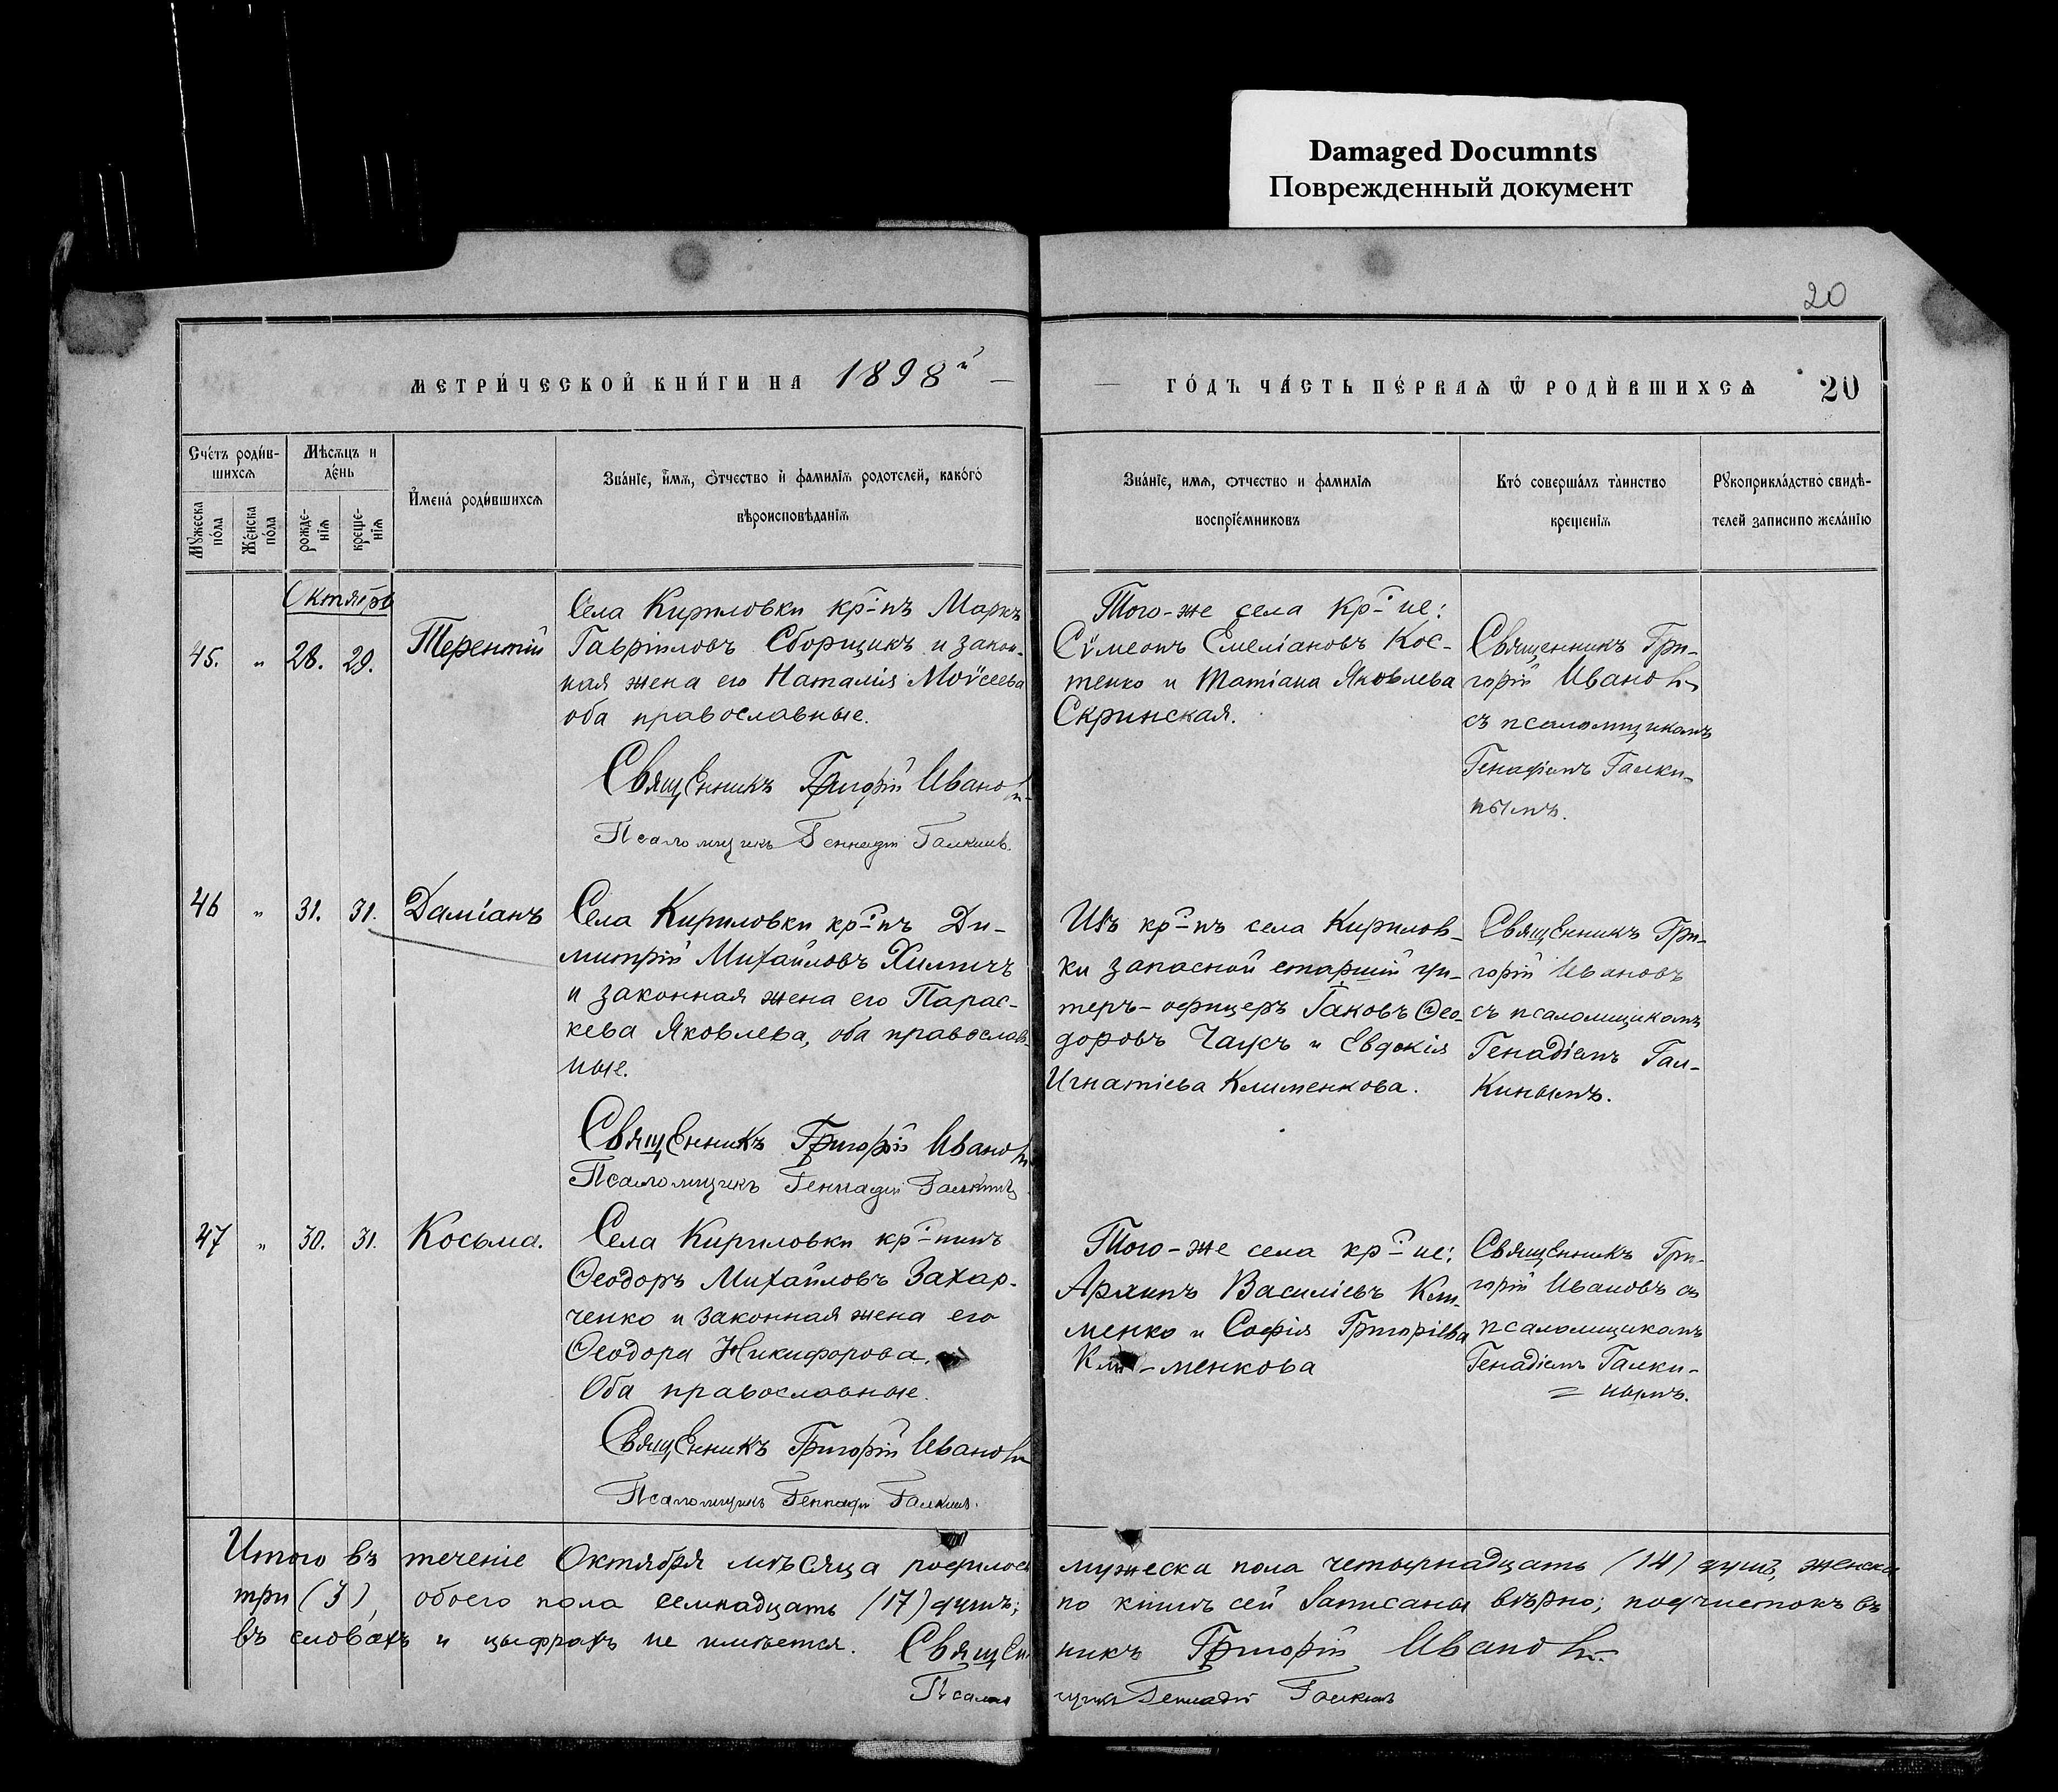 Damaged Documnts
Поврежденный документ
20
МЕТРИ́ЧЕСКОЙ КНИ́ГИ НА 1898й
ГО́ДЪ ЧА́СТЬ ПЕ́РВАЯ Ѡ РОДИ́ВШИХСѦ 20
Сче́тъ роди́в-
шихсѧ
Мѣсѧцъ и
де́нь
И҆мена̀ роди́вшихсѧ
Зва́нїе, и҆́мѧ, ѻ҆́тчество и҆ фамилїѧ родотелей, како́го
вѣроисповѣданїѧ
Зва́нїе, имѧ, ѻтчество и фамилїѧ
воспрїе́мниковъ
Кто̀ соверша́лъ та́инство
крещенїѧ
Рꙋкоприкла́дство свидѣ-
телей записи по жела́нїю
Мꙋжеска
по́ла
Же́нска
по́ла
рожде-
нїѧ
креще-
нїѧ
Октябрь
45. „ 28. 29. Терентій
Села Кириловки кр-нъ Маркъ
Гавріиловъ Сборщикъ и закон-
ная жена его Наталія Моѵсеева
оба православные.
Священникъ Григорій Ивановъ
Псаломщикъ Геннадій Галкинъ.
Того-же села кр-не:
Сѵмеонъ Емеліановъ Кос-
тенко и Татіана Яковлева
Скринская.
Священникъ Гри-
горій Ивановъ
съ псаломщикомъ
Генадіемъ Галки-
нымъ.
46 „ 31. 31. Даміанъ
Села Кириловки кр-нъ Ди-
митрій Михайловъ Химичъ
и законная жена его Парас-
кева Яковлева, оба православ-
ные.
Священникъ Григорій Ивановъ
Псаломщикъ Геннадій Галкинъ
Изъ кр-нъ села Кирилов-
ки запасной старшій ун-
теръ-офицеръ Іаковъ Ѳео-
доровъ Чаусъ и Евдокія
Игнатіева Клименкова.
Священникъ Гри-
горій Ивановъ
съ псаломщикомъ
Генадіемъ Гал-
кинымъ.
47 „ 30. 31. Косьма.
Села Кириловки кр-нинъ
Ѳеодоръ Михайловъ Захар-
ченко и законная жена его
Ѳеодора Никифорова.
Оба православные.
Священникъ Григорій Ивановъ
Псаломщикъ Геннадій Галкинъ.
Того-же села кр-не:
Архипъ Василіевъ Кли-
менко и Софія Григоріева
Кли-менкова
Священникъ Гри-
горій Ивановъ съ
псаломщикомъ
Генадіемъ Галки-
= нымъ.
Итого въ теченіе Октября мѣсяца родилось мужеска пола четырнадцать (14) душъ, женска
три (3), обоего пола семнадцать (17) душъ; по книгѣ сей записаны вѣрно; подчистокъ въ
въ словахъ и цыфрахъ не имѣется. Священникъ Григорій Ивановъ
Псаломщикъ Геннадій Галкинъ